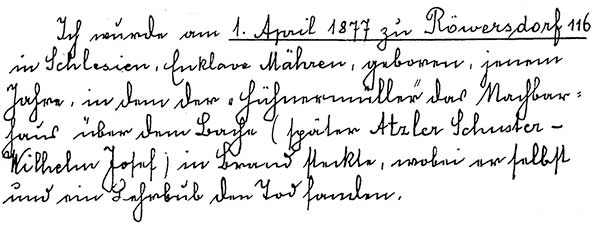 Ich wurde am 1. April 1877 zu Röwersdorf 116
in Schlesien, Enklave Mähren, geboren, jenem
Jahre, in dem der „Hühnermüller" das Nachbar=
haus über dem Bache (später Atzler Schuster -
Wilhelm Josef) in Brand steckte, wobei er selbst
und ein Lehrbub den Tod fanden.